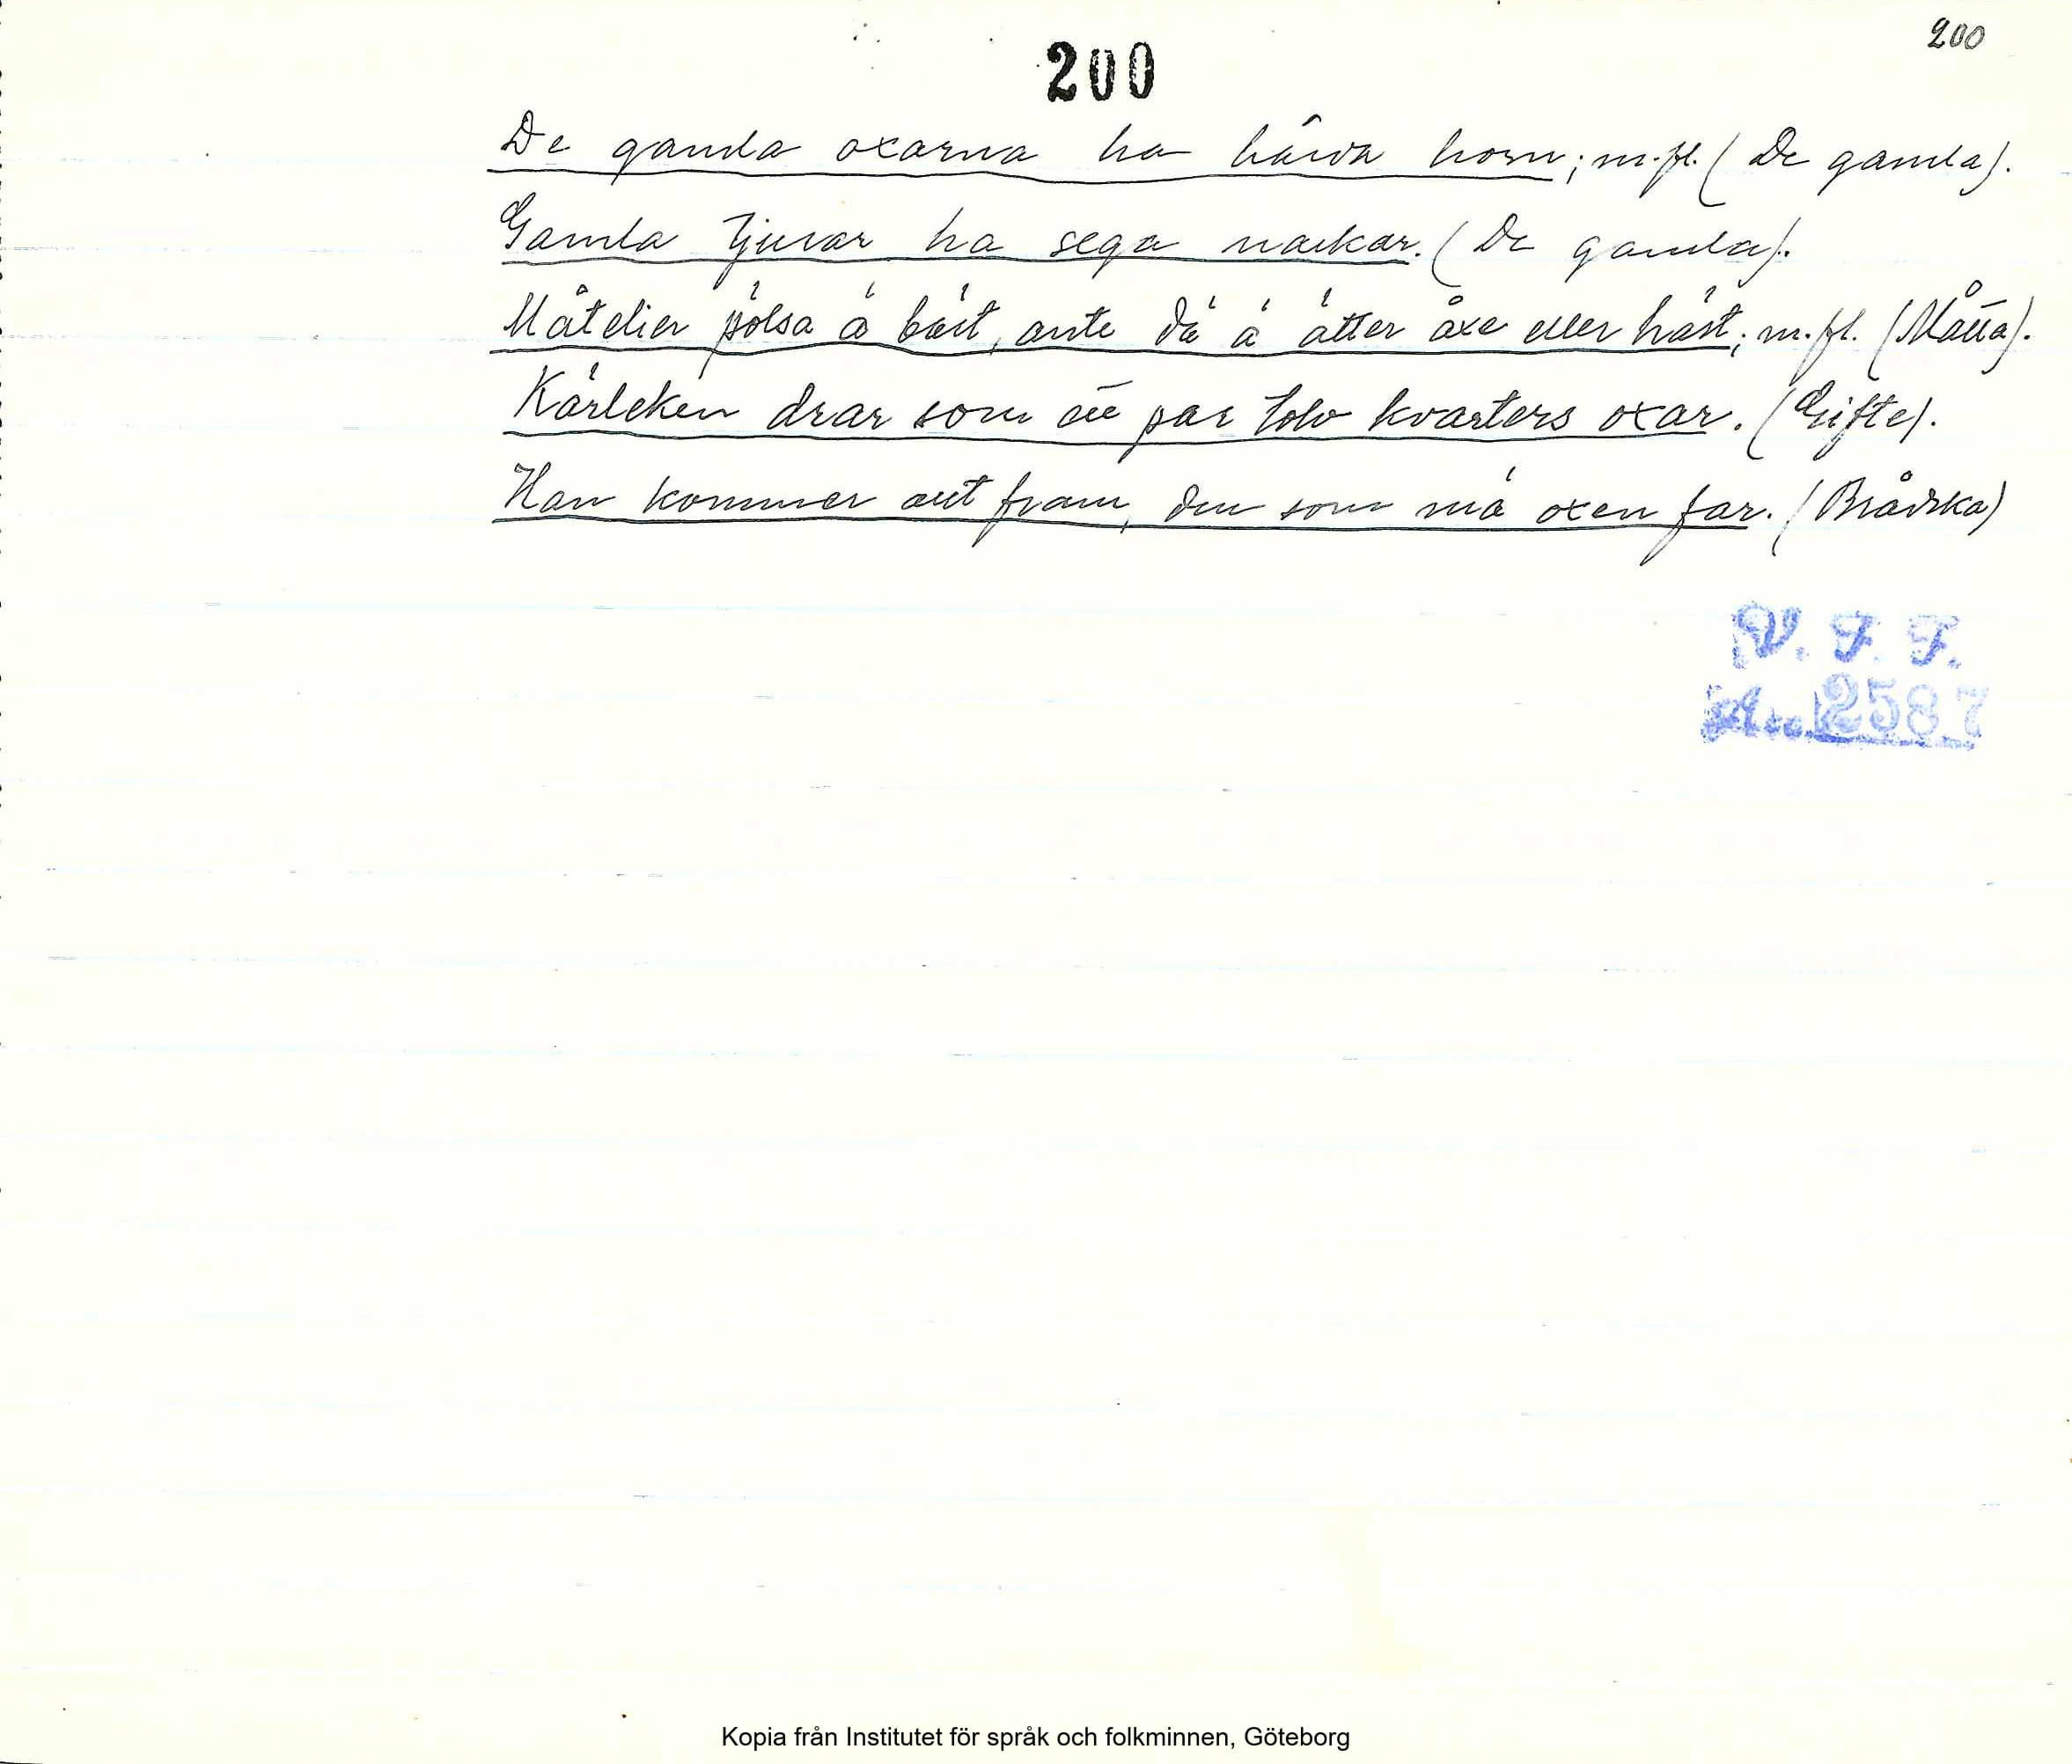 200
200
De gamla oxarna ha hårda horn; m.fl. (De gamla).
Gamla tjurar ha sega nackar. (De gamla).
Måtelier pölsa ä bäst, ante dä ä ätter åxe eller häst; m.fl. (Måtta).
Kärleken drar som ett par tolv kvarters oxar. (Gifte).
Han kommer ett fram, den som mä oxen far. (Brådska)
V. F. F.
Acc. 2587
Kopia från Institutet för språk och folkminnen, Göteborg